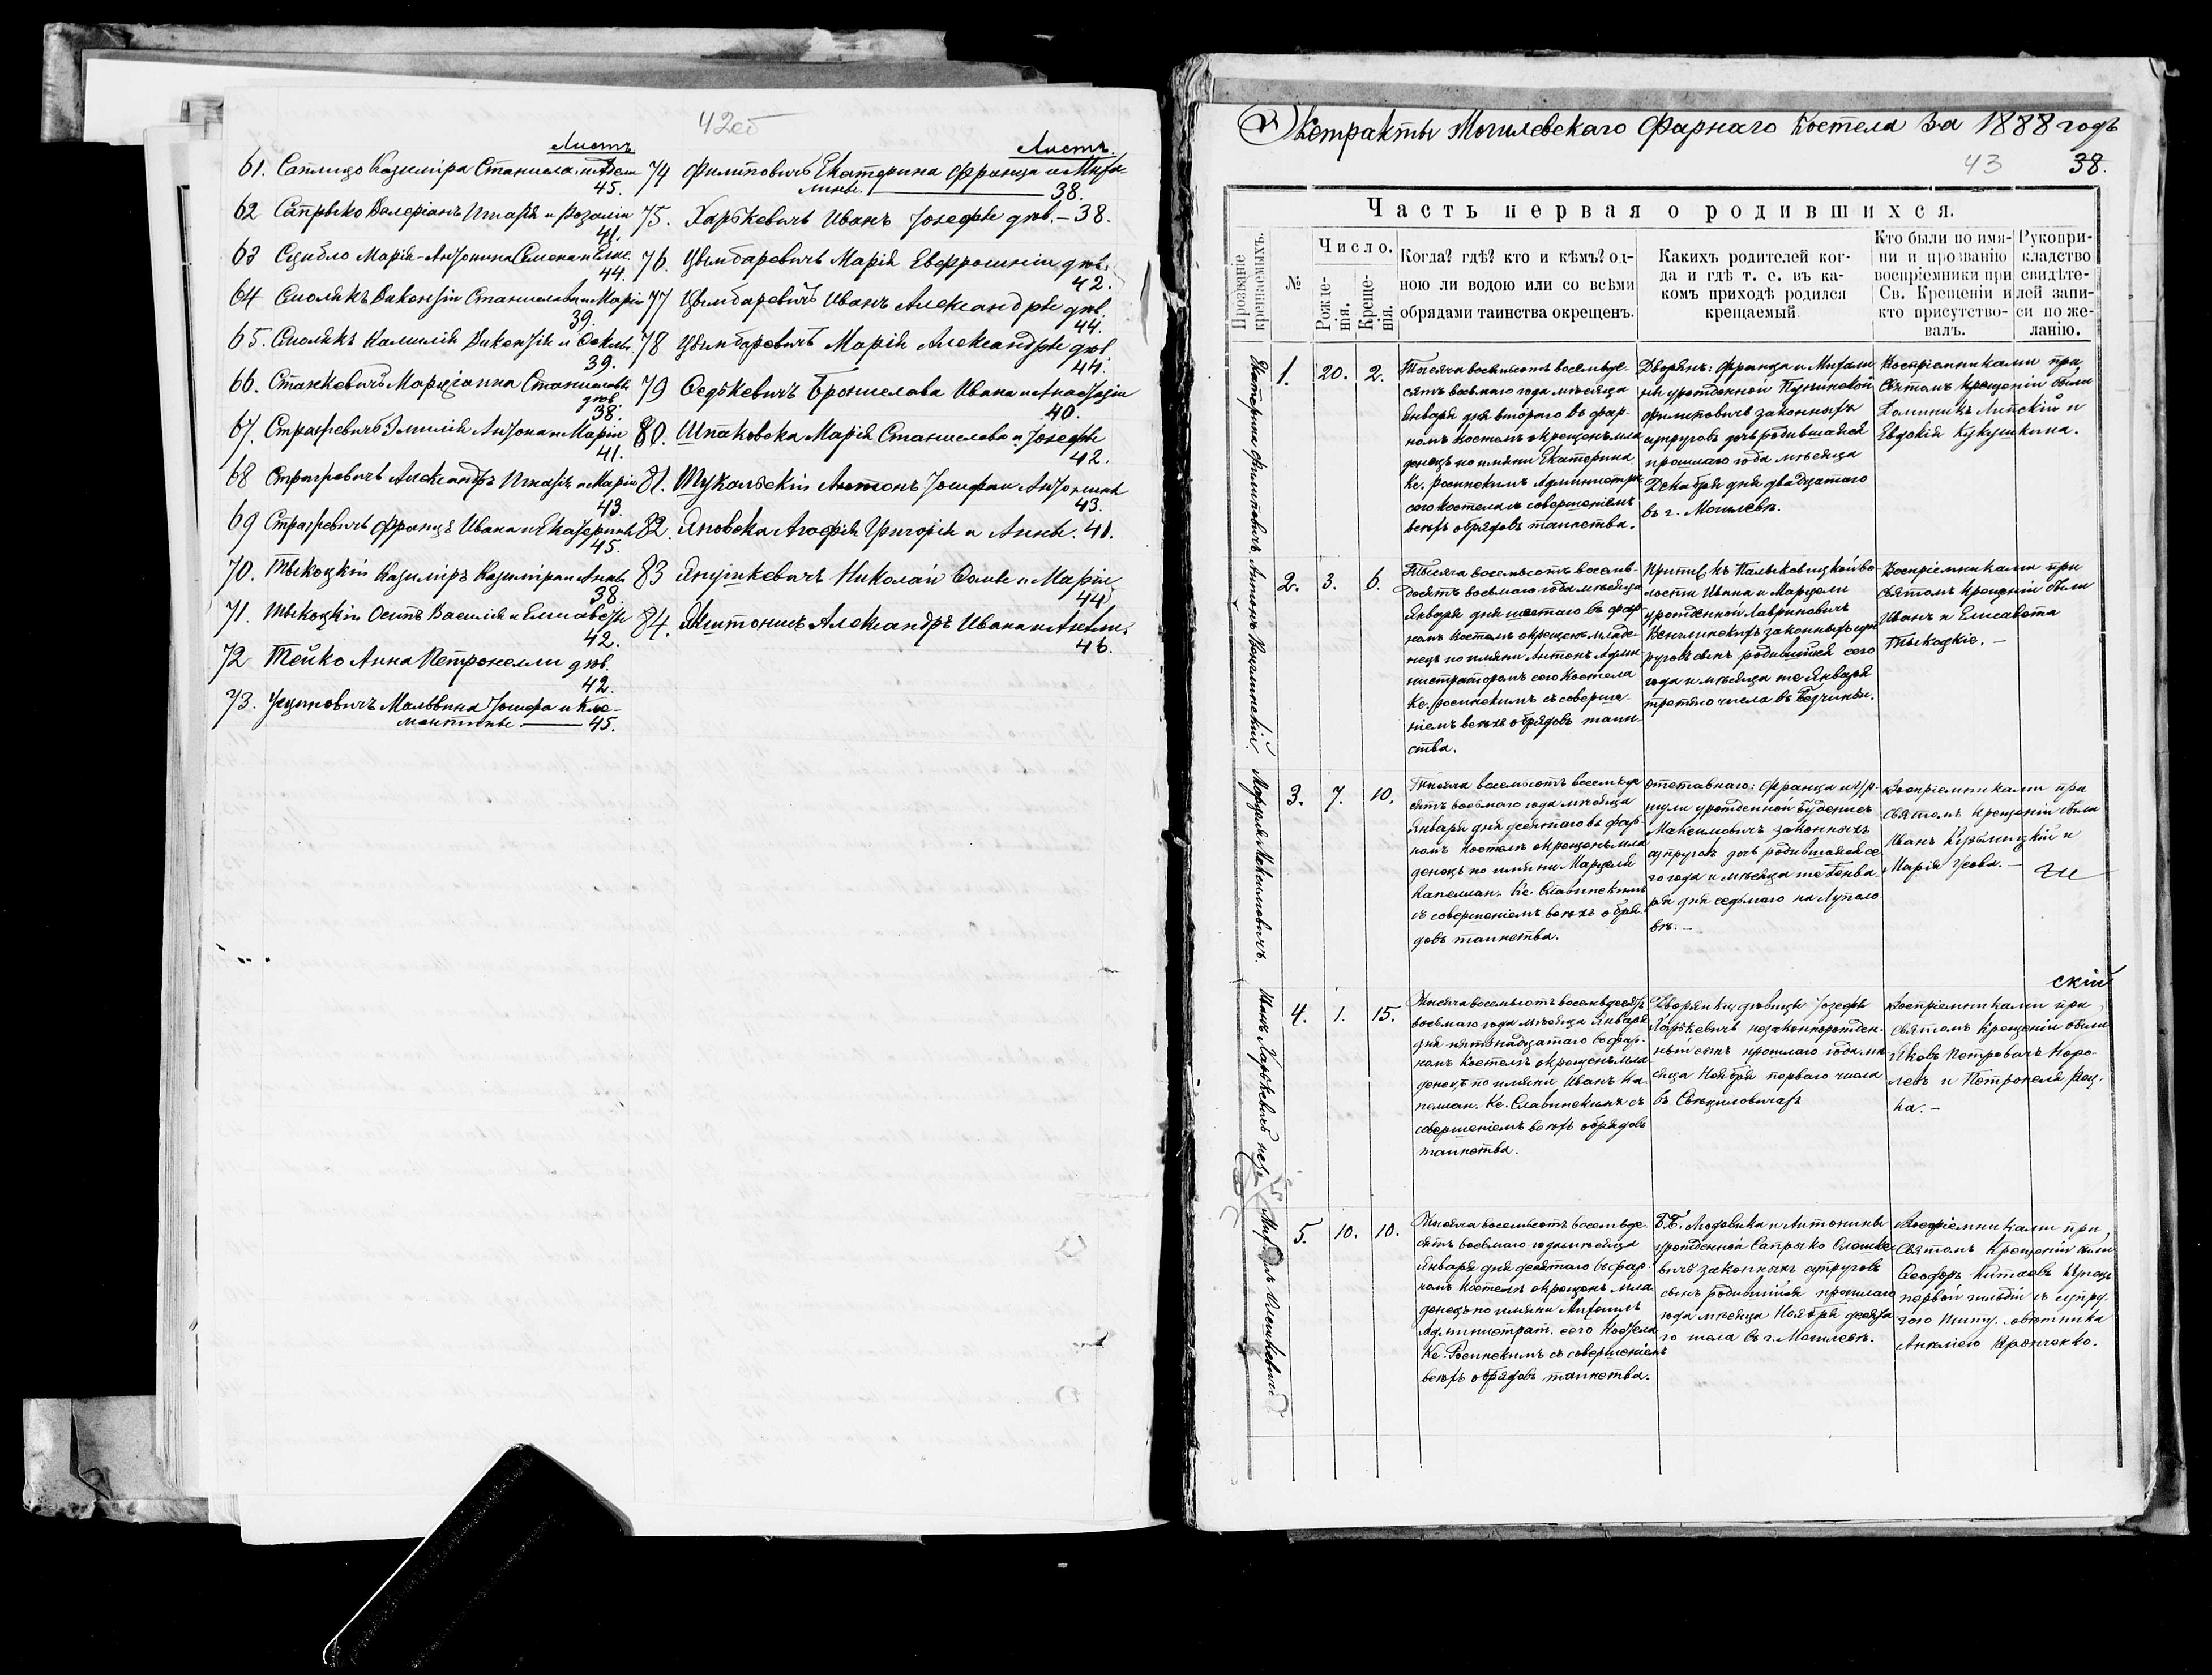 42об
Листъ
61. Саплицо Казимира Станислава и Адели
45.
62 Сапрыко Валеріанъ Игнатія и Розаліи
41.
63 Сцибло Марія-Антонина Семена и Елис.
44.
64 Смолякъ Викентій Станислава и Маріи
39.
65. Смолякъ Камилія Викентія и Феклы
39.
66. Станкевичъ Маріанна Станиславы
дѣв.
38.
67. Стратевичъ Эмилія Антона и Маріи
41.
68 Стратевичъ Александръ Игнатія и Маріи
43.
69 Стратевичъ Францъ Ивана и Екатерины
45.
70. Тыкоцкій Казиміръ Казиміра и Анны
38.
71. Тыкоцкій Осипъ Василія и Елисаветы
42.
72 Тейко Анна Петронелли дѣв.
42.
73. Усциновичъ Мальвина Іосифа и Кле-
ментины 45.
Листъ.
74 Филиповичъ Екатерина Франца и Миха-
лины. 38.
75. Харкевичъ Иванъ Іозефы дѣв. - 38.
76. Цымбаревичъ Марія Евфросиніи дѣв.
42.
77 Цымбаревичъ Иванъ Александры дѣв.
44.
78 Цымбаревичъ Марія Александры дѣв.
44.
79 Федькевичъ Бронислава Ивана и Анастазіи
40.
80. Шпаковска Марія Станислава и Іозефы
42.
81. Шукальскій Антонъ Іосифа и Антонины
43.
82. Яновска Агафія Григорія и Анны. 41.
83 Янушкевичъ Николай Фомы и Маріи
44
84. Александръ Ивана и
46.
Экстракты Могилевскаго Фарнаго Костела за 1888 годъ
43 38.
Часть первая о родившихся.
Прозваніе крещаемыхъ.
№
Число.
Рожденія.
Крещенія.
Когда? гдѣ? кто и кѣмъ? од-
ною ли водою или со всѣми
обрядами таинства окрещенъ.
Какихъ родителей ког-
да и гдѣ т. е. въ ка-
комъ приходѣ родился
крещаемый.
Кто были по имя-
ни и прозванію
воспріемники при
Св. Крещеніи и
кто присутство-
валъ.
Рукопри-
кладство
свидѣте-
лей запи-
си по же-
ланію.
Екатерина Филиповичъ.
1. 20. 2.
Тысяча восемьсотъ восемьде-
сятъ восьмаго года мѣсяца
Января дня втораго въ фар-
номъ Костелѣ окрещенъ мла
денецъ по имяни Екатерина
Кс. Росинскимъ Администр.
сего Костела съ совершеніемъ
всѣхъ обрядовъ таинства.
Дворянъ: Франца и Михали-
ны урожденной
Филиповичъ законныхъ
супруговъ дочь родившаяся
прошлаго года мѣсяца
Декабря дня двадцатаго
въ г. Могилевѣ.
Воспріемниками при
Святомъ Крещеніи были
Доминикъ Липскій и
Евдокія Кукушкина.
Антонъ
2. 3. 6.
Тысяча восемьсотъ восемь-
десятъ восьмаго года мѣсяца
Января дня шестаго въ фар-
номъ Костелѣ окрещенъ младе-
нецъ по имяни Антонъ Адми-
нистраторомъ сего Костела
Кс. Росинскимъ съ соверше-
ніемъ всѣхъ обрядовъ таин-
ства.
къ Пальковицкой во-
лости Ивана и Марцели
урожденной Лавриновичъ
законныхъ суп-
руговъ сынъ родившійся сего
года и мѣсяца же Января
третьяго числа въ
Воспріемниками при
Святомъ Крещеніи были
Иванъ и Елисавета
Тыкоцкіе. -
Марцеля Максимовичъ.
3. 7. 10.
Тысяча восемьсотъ восемьде
сятъ восьмаго года мѣсяца
Января дня десятаго въ фар-
номъ Костелѣ окрещенъ мла
денецъ по имяни Марцеля
Капеллан. Кс. Славинскимъ
съ совершеніемъ всѣхъ обря-
довъ таинства.
Отставнаго: Франца и Ур-
шули урожденной
Максимовичъ законныхъ
супруговъ дочь родившаяся се
го года и мѣсяца же Янва-
ря дня седьмаго на Луполо
вѣ. -
Воспріемниками при
Святомъ Крещеніи были
Иванъ и
Марія Усова. -
Иванъ Харкевичъ
4. 1. 15.
Тысяча восемьсотъ восемьдесятъ
восьмаго года мѣсяца Января
дня пятнадцатаго въ фар-
номъ Костелѣ окрещенъ мла
денецъ по имяни Иванъ Ка-
пеллан. Кс. Славинскимъ съ
совершеніемъ всѣхъ обрядовъ
таинства.
Дворянки дѣвицы Іозефы
Харкевичъ незаконорожден-
ный сынъ прошлаго года мѣ
сяца Ноября перваго числа
въ
скій
Воспріемниками при
Святомъ Крещеніи были
Яковъ Петровичъ Коро-
левъ и Петронеля
ка. -
Михаилъ Олешкевичъ
5. 10. 10.
Тысяча восемьсотъ восемьде-
сятъ восьмаго года мѣсяца
Января дня десятаго въ фар-
номъ Костелѣ окрещенъ мла
денецъ по имяни Михаилъ
Администрат. сего Костела
Кс. Росинскимъ съ совершеніемъ
всѣхъ обрядовъ таинства.
Людовика и Антонины
урожденной Сапрыко Олешке-
вичъ законныхъ супруговъ
сынъ родившійся прошлаго
года мѣсяца Ноября десята
го числа въ г. Могилевѣ.
Воспріемниками при
Святомъ Крещеніи были
Феодоръ Китаевъ Купецъ
первой гильдіи съ супру
гою